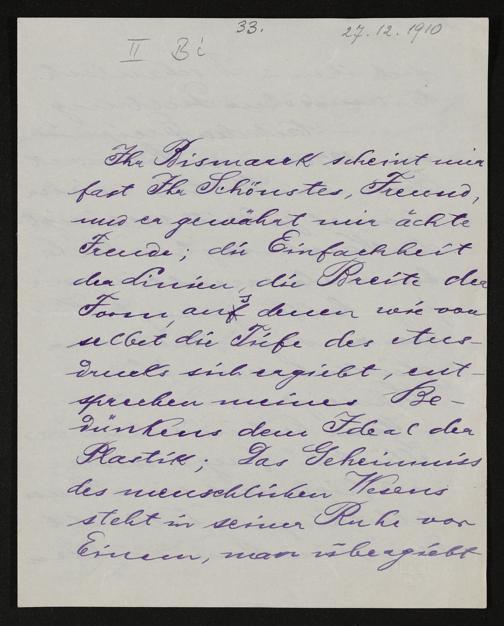 33.
27.12.1910
II Bi
Ihr Bismarck scheint mir
fast Ihr Schönstes, Freund,
und er gewährt mir ächte
Freude; die Einfachheit
der Linien, die Breite der
Form, aus denen wie von
selbst die Tiefe des Aus-
drucks sich ergiebt, ent-
sprechen meines Be-
dünkens dem Ideal der
Plastik; Das Geheimniss
des menschlichen Wesens
steht in seiner Ruhe vor
Einem, man übergiebt